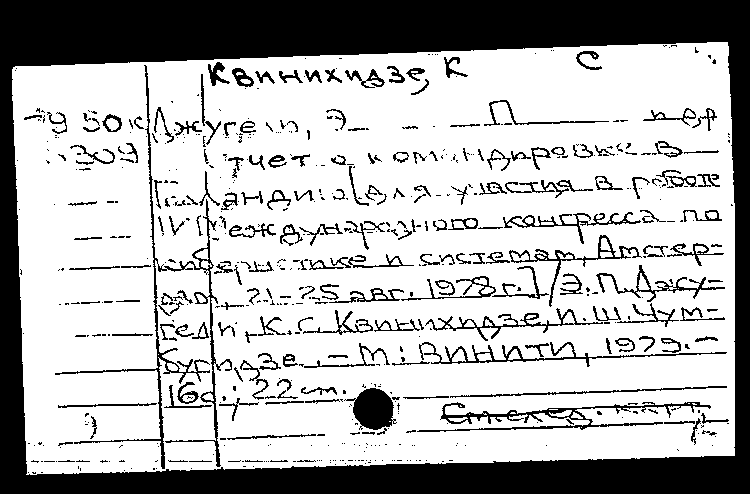 Квинихидзе, К С
Джугели, Э П пер
309 Отчет о командировке в
Голландию [для участия в работе
IV Международного конгресса по
кибернетике и системам, Амстер-
дам, 21-25 авг. 1978г.] / Э.П.Джу-
гели, К.С. Квинихидзе, И.Ш.Чум-
буридзе. - М.: ВИНИТИ, 1979.-
16с.; 22 см.
См.след. карт.